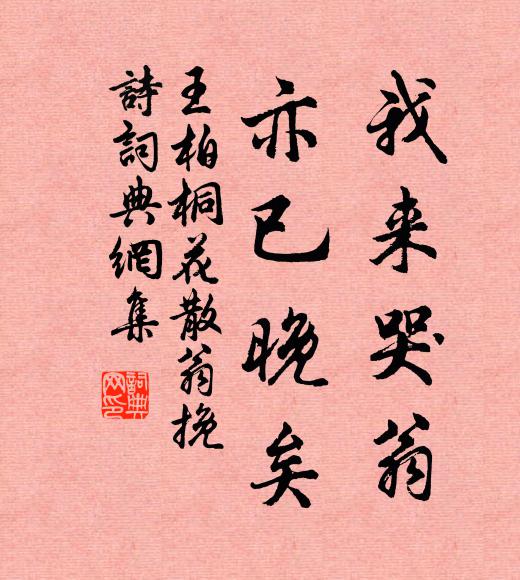 我来哭翁
亦已晚矣
王柏桐花散翁挽
詩詞典網集
詞典网印